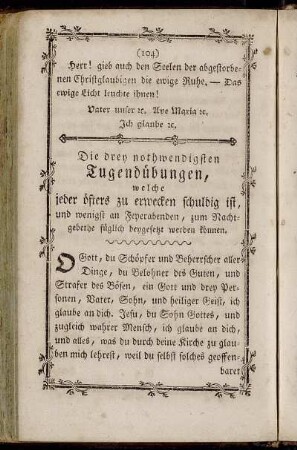 (104)
Herr! gieb auch den Seelen der abgestorbe-
nen Christglaubigen die ewige Ruhe. — Das
ewige Licht leuchte ihnen!
Vater unser ꝛc. Ave Maria ꝛc.
Ich glaube ꝛc.
Die drey nothwendigsten
Tugendübungen,
welche
jeder öfters zu erwecken schuldig ist,
und wenigst an Feyerabenden, zum Nacht-
gebethe füglich beygesetzt werden können.
O Gott, du Schöpfer und Beherrscher aller
Dinge, du Belohner des Guten, und
Strafer des Bösen, ein Gott und drey Per-
sonen, Vater, Sohn, und heiliger Geist, ich
glaube an dich. Jesu, du Sohn Gottes, und
zugleich wahrer Mensch, ich glaube an dich,
und alles, was du durch deine Kirche zu glau-
ben mich lehrest, weil du selbst solches geoffen-
baret